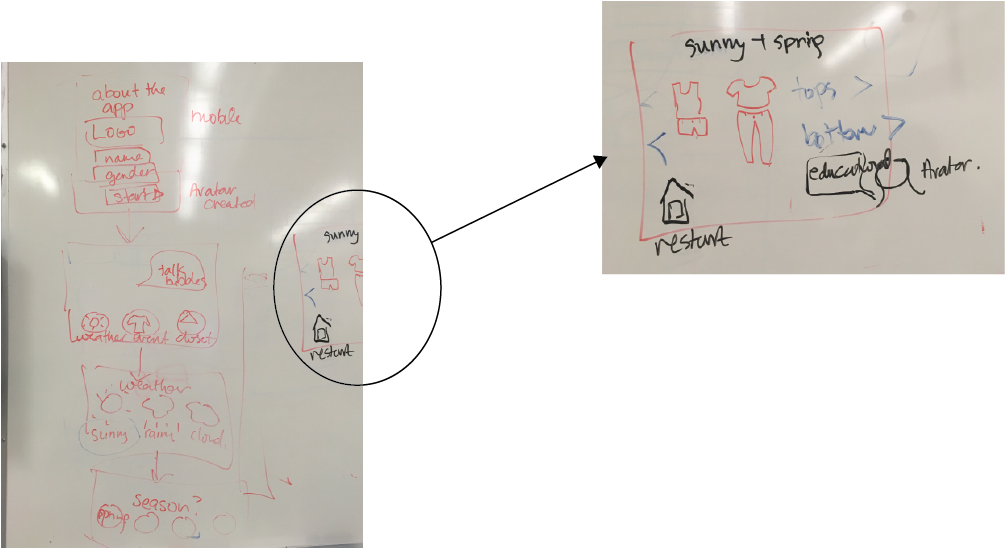 about the
app
LOGO
mobile
name
gender
start
Avatar
created
talk
bubbles
weather event closet
weather
sunny rainy cloud
season?
spring
sunny
restart
sunny + spring
tops
bottom
Avatar.
restart